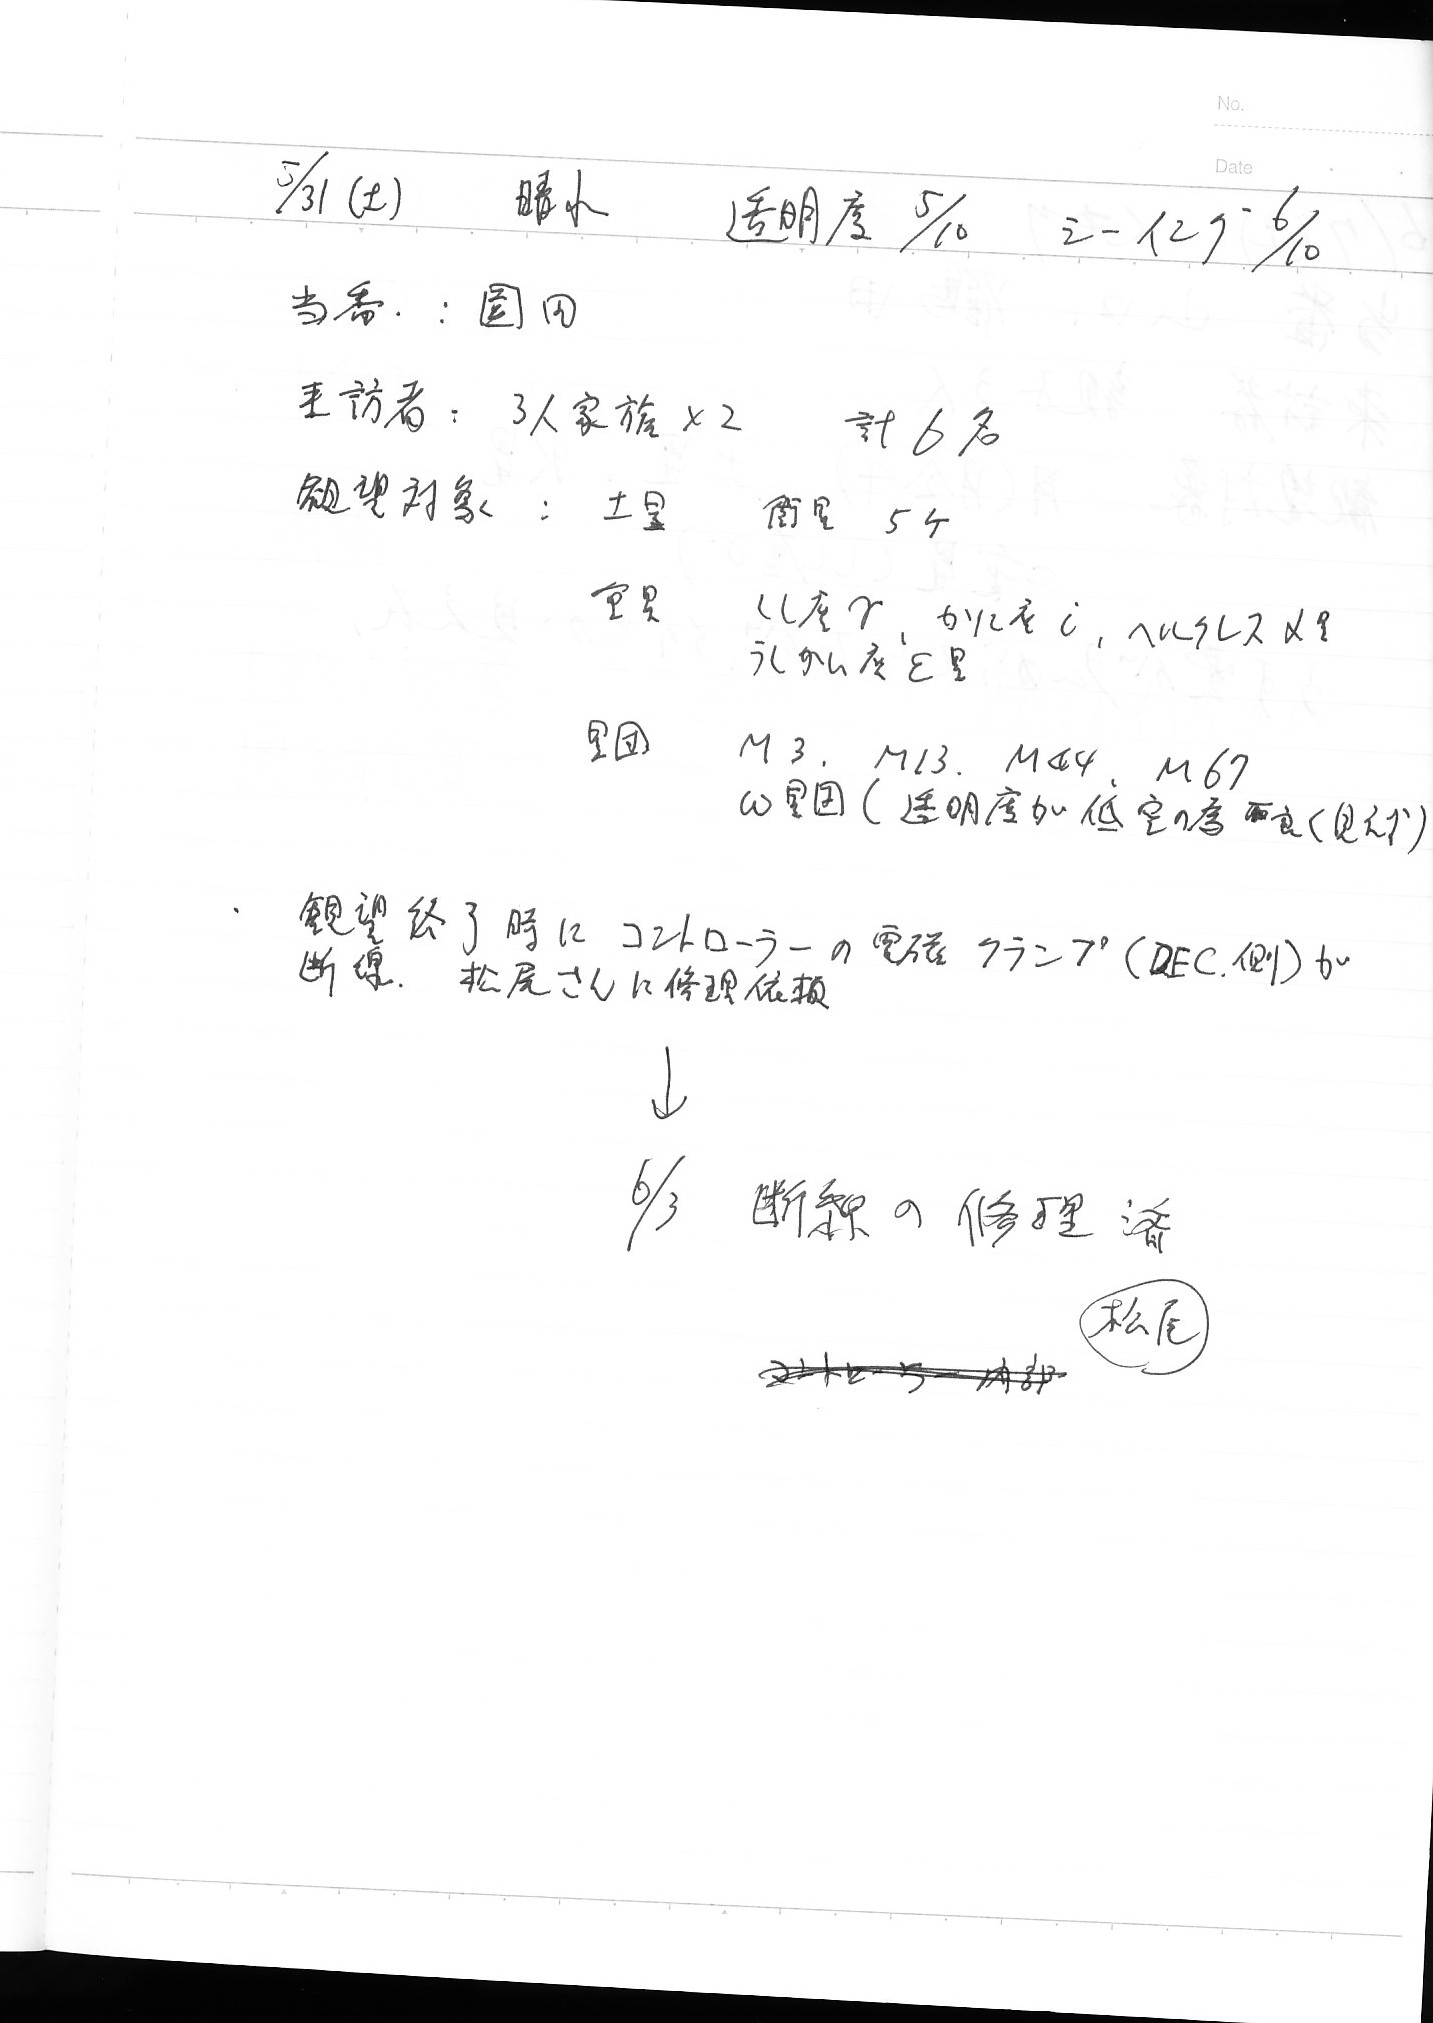 No.
Date
5/31(土) 晴れ 透明度 5/10 シーイング 6/10
当番.：園田
来訪者：3人家族×2 計6名
観望対象：土星 衛星 5ケ
重星 しし座γ、かに座ι、ヘルクレスα星
うしかい座ε星
星団 M3. M13. M44、M67
ω星団(透明度が低空の為 良く見えず)
・観望終了時にコントローラーの電磁クランプ(DEC.側)が
断線. 松尾さんに修理依頼
↓
6/3 断線の修理済
松尾
コントローラー内部